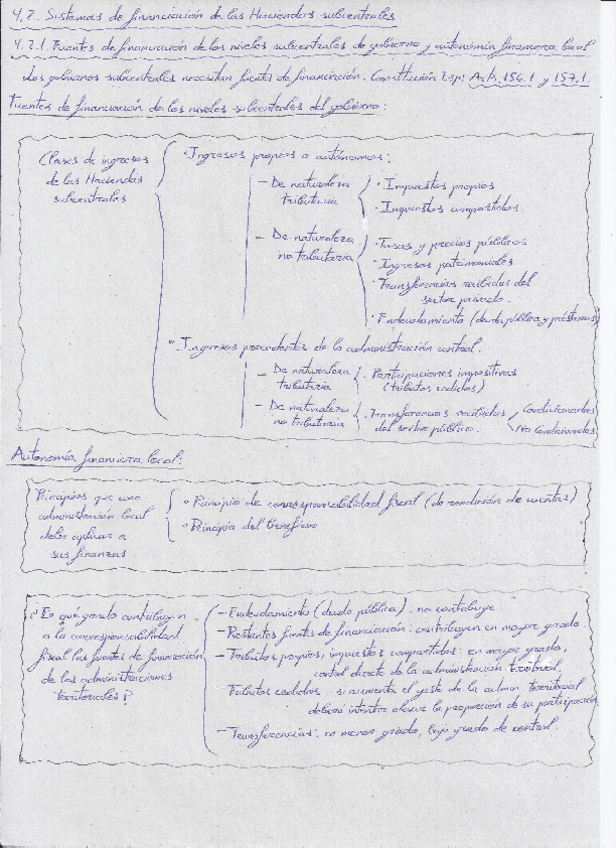 4.2. Sistemas de financiación de las Haciendas subcentrales
4.2.1. Fuentes de financiación de los niveles subcentrales de gobierno y autonomía financiera local
Los gobiernos subcentrales necesitan fuentes de financiación. Constitución Esp: Arts. 156.1 y 157.1.
Fuentes de financiación de los niveles subcentrales del gobierno:
Clases de ingresos
de las Haciendas
subcentrales
• Ingresos propios o autónomos:
- De naturaleza
tributaria
• Impuestos propios
• Impuestos compartidos.
- De naturaleza
no tributaria
• Tasas y precios públicos
• Ingresos patrimoniales
• Transferencias recibidas del
sector privado.
• Endeudamiento (deuda pública y préstamos)
• Ingresos procedentes de la administración central.
- De naturaleza
tributaria
. Participaciones impositivas
(tributos cedidos)
- De naturaleza
no tributaria
. Transferencias recibidas
del sector público.
Condicionadas
No Condicionadas
Autonomía financiera local:
Principios que una
administración local
debe aplicar a
sus finanzas
• Principio de corresponsabilidad fiscal (de rendición de cuentas)
• Principio del beneficio
¿En qué grado contribuyen
a la corresponsabilidad
fiscal las fuentes de financiación
de las administraciones
territoriales?
- Endeudamiento (deuda pública): no contribuye
- Restantes fuentes de financiación: contribuyen en mayor grado.
- Tributos propios, impuestos compartidos: en mayor grado,
control directo de la administración territorial.
- Tributos cedidos: si aumenta el gasto de la admon. territorial
deberá intentar elevar la proporción de su participación
- Transferencias: en menor grado, bajo grado de control.